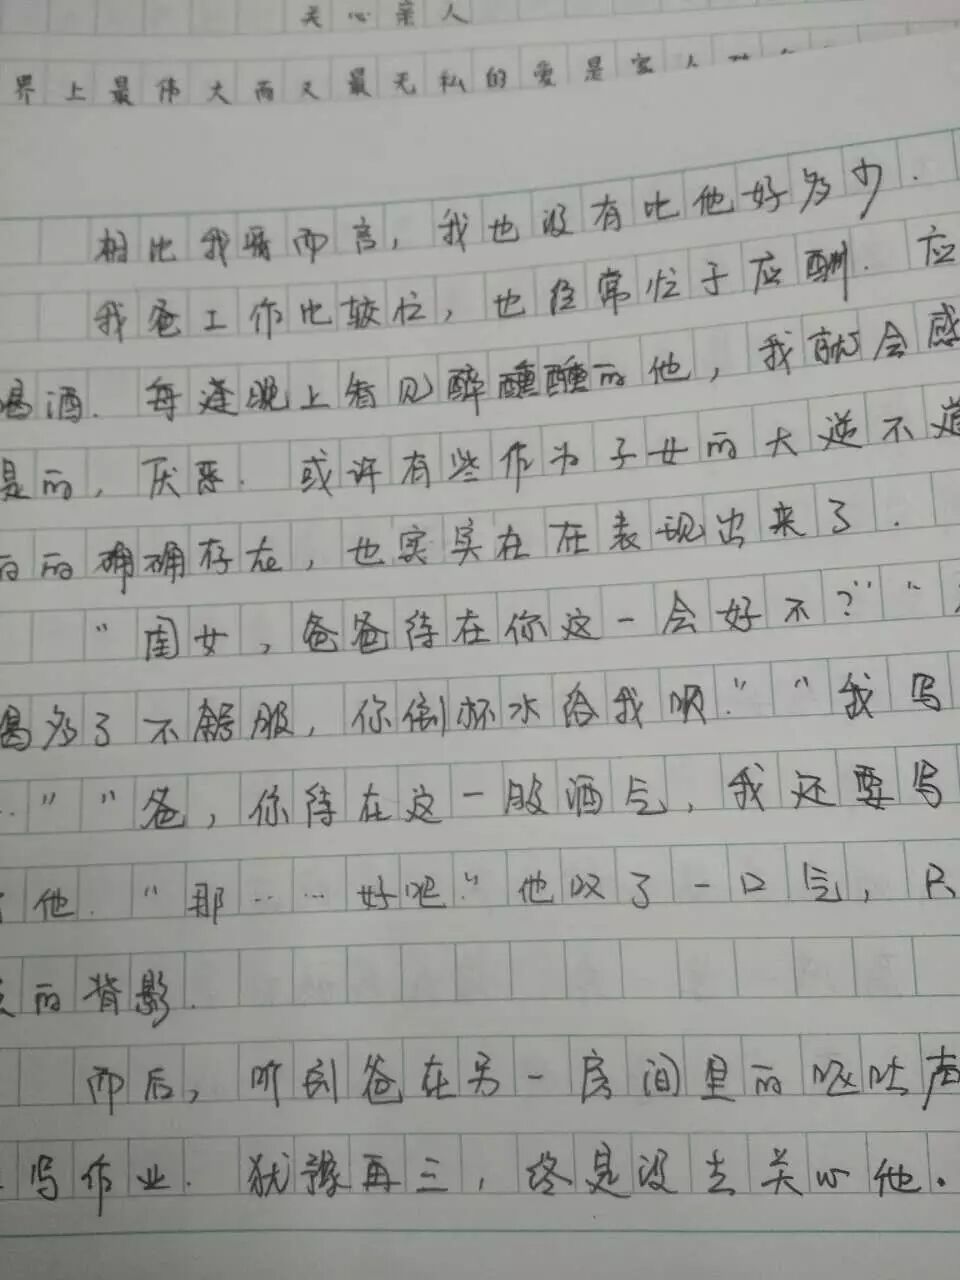 关心亲人
界上最伟大而又最无私的爱是家人
相比我哥而言，我也没有比他好多少.
我爸工作比较忙，也经常忙于应酬.应
喝酒.每逢晚上看见醉醺醺的他，我就会感
是的，厌恶.或许有些作为子女的大逆不道
的的确确存在，也实实在在表现出来了.
“闺女，爸爸待在你这一会好不？”“
喝多了不舒服，你倒杯水给我呗.”“我写
”“爸，你待在这一股酒气，我还要写
他.“那……好吧.”他叹了一口气，只
的背影.
而后，听到爸在另一房间里的呕吐声
写作业.犹豫再三，终是没去关心他.